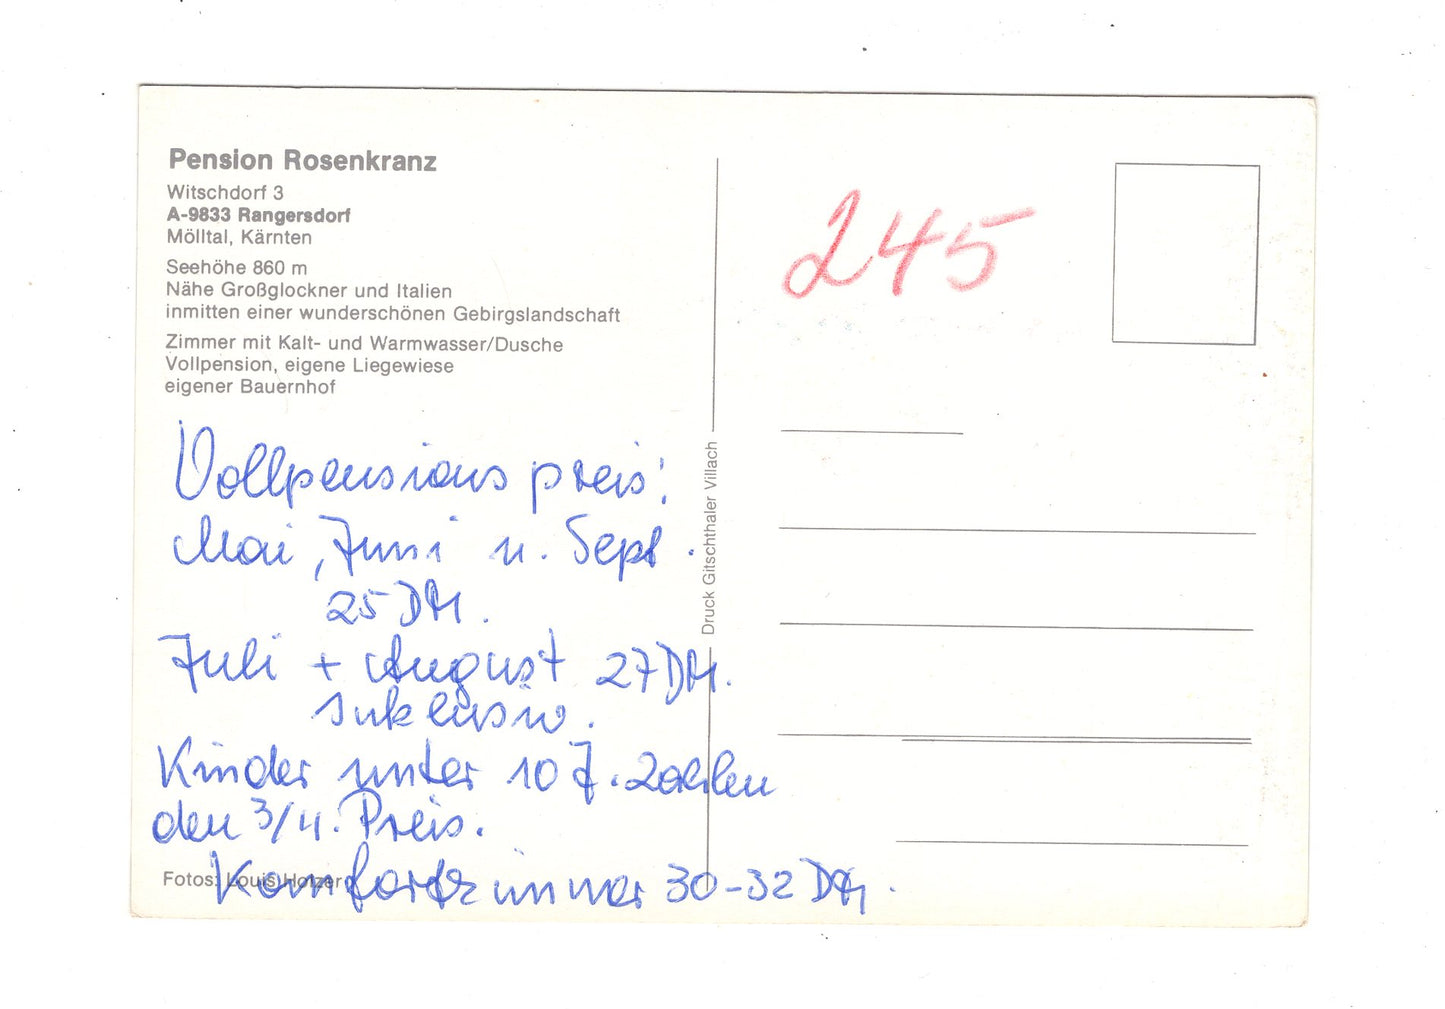 Pension Rosenkranz
Witschdorf 3
A-9833 Rangersdorf
Mölltal, Kärnten
Seehöhe 860 m
Nähe Großglockner und Italien
inmitten einer wunderschönen Gebirgslandschaft
Zimmer mit Kalt- und Warmwasser/Dusche
Vollpension, eigene Liegewiese
eigener Bauernhof
Vollpensions preis:
Mai, Juni u. Sept.
25 DM.
Juli + August 27 DM.
Inklusiv.
Kinder unter 10 J. Zahlen
den 3/4. Preis.
Komfortzimmer 30-32 DM.
Fotos: Louis Holzer
Druck Gitschthaler Villach
245